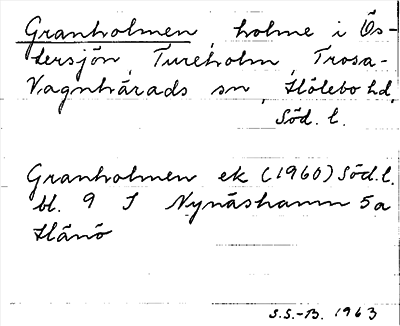 Granholmen, holme i Ös-
tersjön, Tureholm, Trosa-
Vagnhärads sn, Hölebo hd,
Söd. l.
Granholmen ek (1960) Söd. l.
bl. 9 I Nynäshamn 5a
Hånö
S.S.-B. 1963